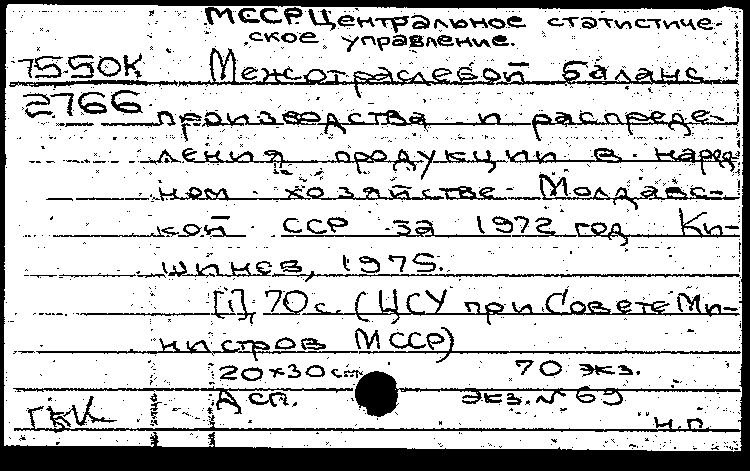 МССР Центральное статистиче-
ское управление.
75-50К Межотраслевой баланс
2766 производства и распреде-
ления продукции в народ
ном хозяйстве Молдавс-
кой ССР за 1972 год Ки-
шинев, 1975.
[1], 70 с. (ЦСУ при Совете Ми-
нистров МССР)
20×30 см 70 экз.
Дсп. экз. № 69
ГБЛ н.п.